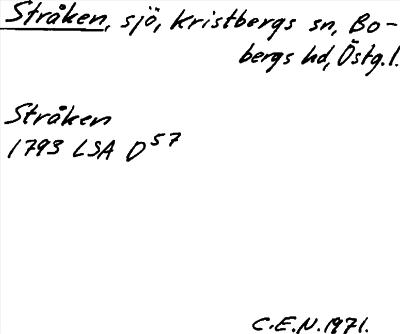 Stråken, sjö, Kristbergs sn, Bo-
bergs hd, Östg.l.
Stråken
1793 LSA D57
C.E.N. 1971.